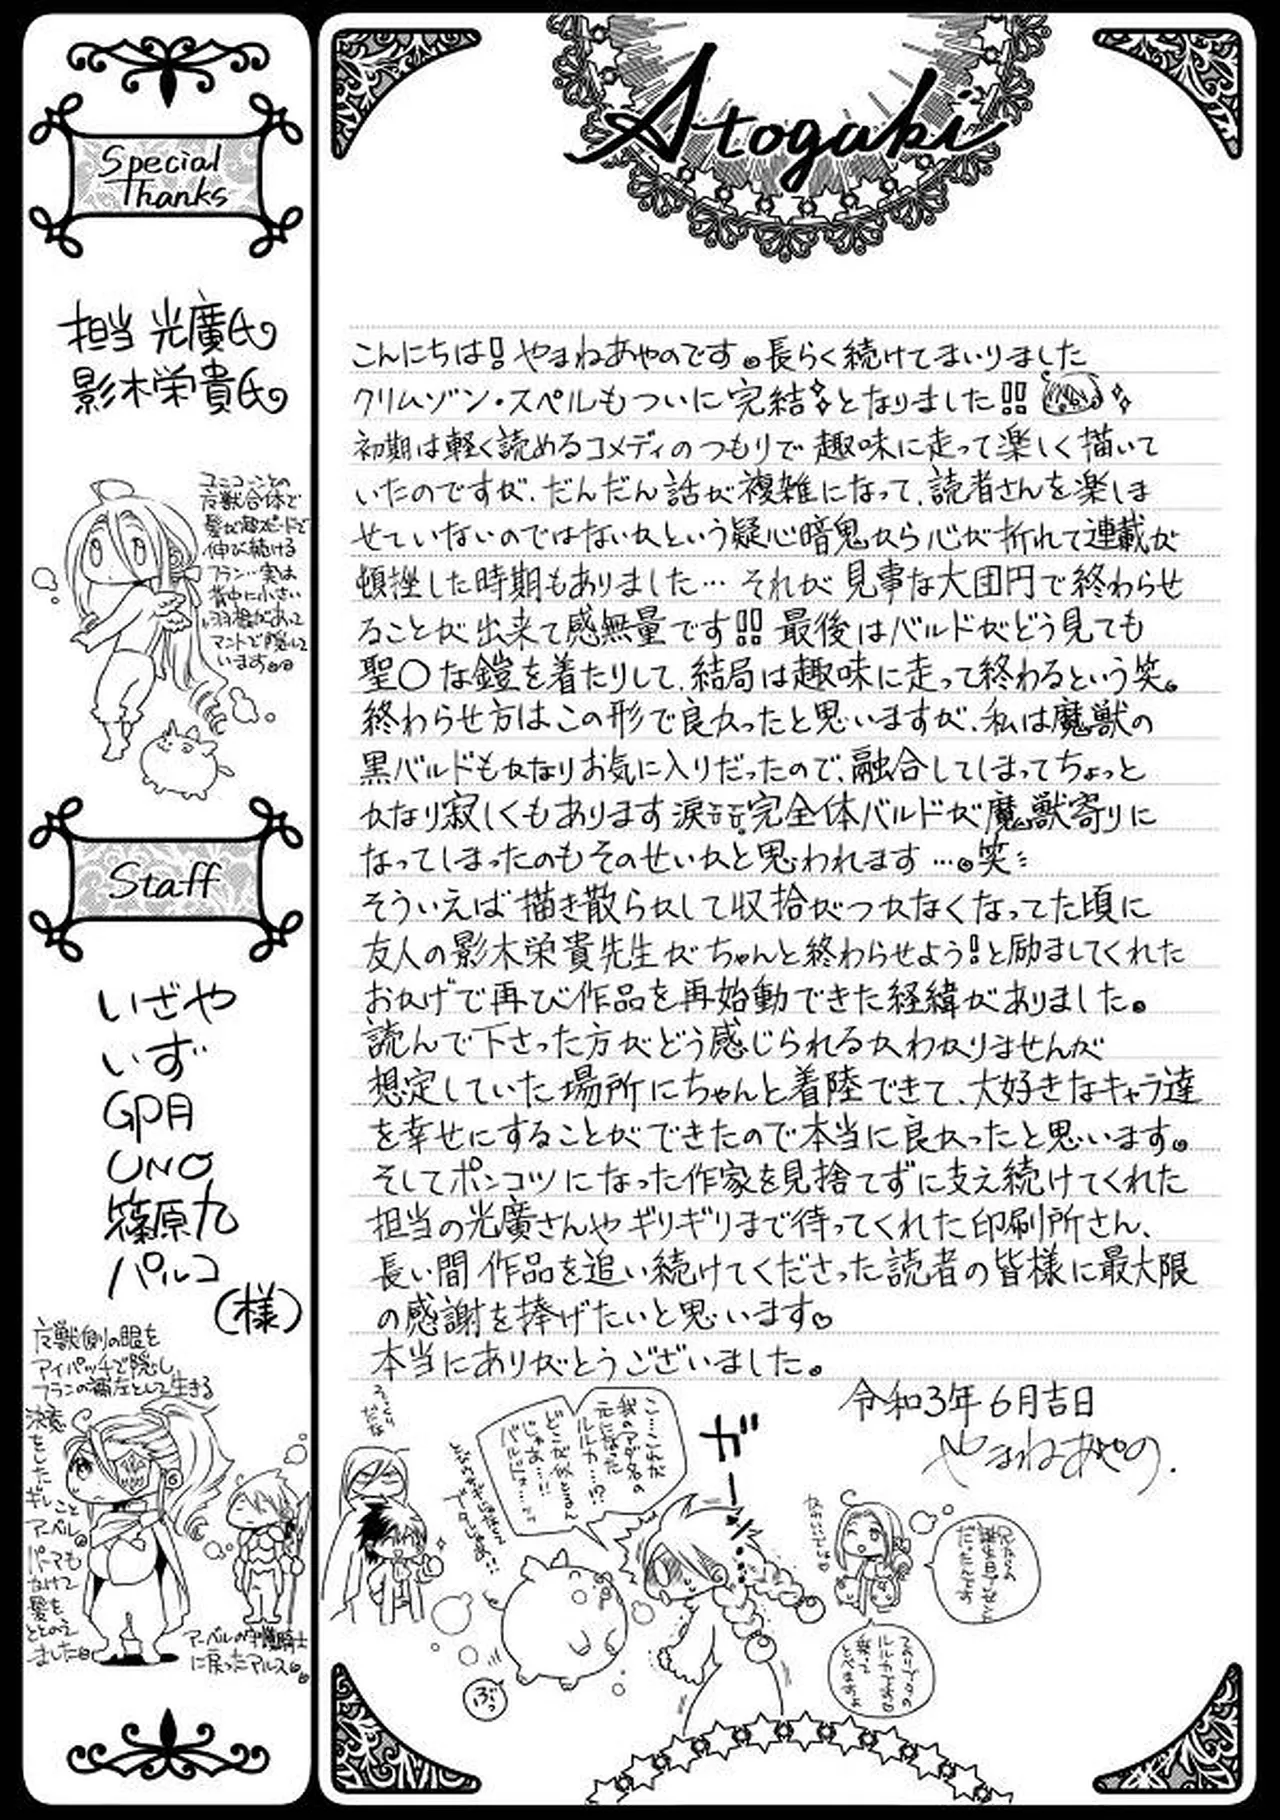 Atogaki
こんにちは!やまねあやのです。長らく続けてまいりました
クリムゾン・スペルもついに完結となりました!!
初期は軽く読めるコメディのつもりで趣味に走って楽しく描いて
いたのですが、だんだん話が複雑になって、読者さんを楽しま
せていないのではないかという疑心暗鬼から心が折れて連載が
頓挫した時期もありました…それが見事な大団円で終わらせ
ることが出来て感無量です!!最後はバルドがどう見ても
聖〇な鎧を着たりして、結局は趣味に走って終わるという笑。
終わらせ方はこの形で良かったと思いますが、私は魔獣の
黒バルドもかなりお気に入りだったので、融合してしまってちょっと
かなり寂しくもあります涙 完全体バルドが魔獣寄りに
なってしまったのもそのせいかと思われます…。笑
そういえば描き散らかして収拾がつかなくなってた頃に
友人の影木栄貴先生がちゃんと終わらせよう!と励ましてくれた
おかげで再び作品を再始動できた経緯がありました。
読んで下さった方がどう感じられるかわかりませんが
想定していた場所にちゃんと着陸できて、大好きなキャラ達
を幸せにすることができたので本当に良かったと思います。
そしてポンコツになった作家を見捨てずに支え続けてくれた
担当の光廣さんやギリギリまで待ってくれた印刷所さん、
長い間作品を追い続けてくださった読者の皆様に最大限
の感謝を捧げたいと思います♡
本当にありがとうございました。
令和3年6月吉日
やまねあやの.
ガーン
こ…これが
我のアダルカの
元になった
ルルカ…!?
じゃあ…!!
バルドは…
ぶっ
Special
Thanks
担当 光廣氏
影木栄貴氏
ユニコーンとの
魔獣合体で
髪が超スピードで
伸び続ける
フラン…実は
背中に小さい
羽根があって
マントで隠して
います
Staff
いざや
いず
GP月
UNO
篠原九
パルコ
(様)
魔獣側の眼を
アイパッチで隠し
フランの補佐として生きる
決意
をした
ギレこと
アーベル
パーマも
かけて
髪を
ととのえ
ました
アーベルの守護騎士
に戻ったアルス